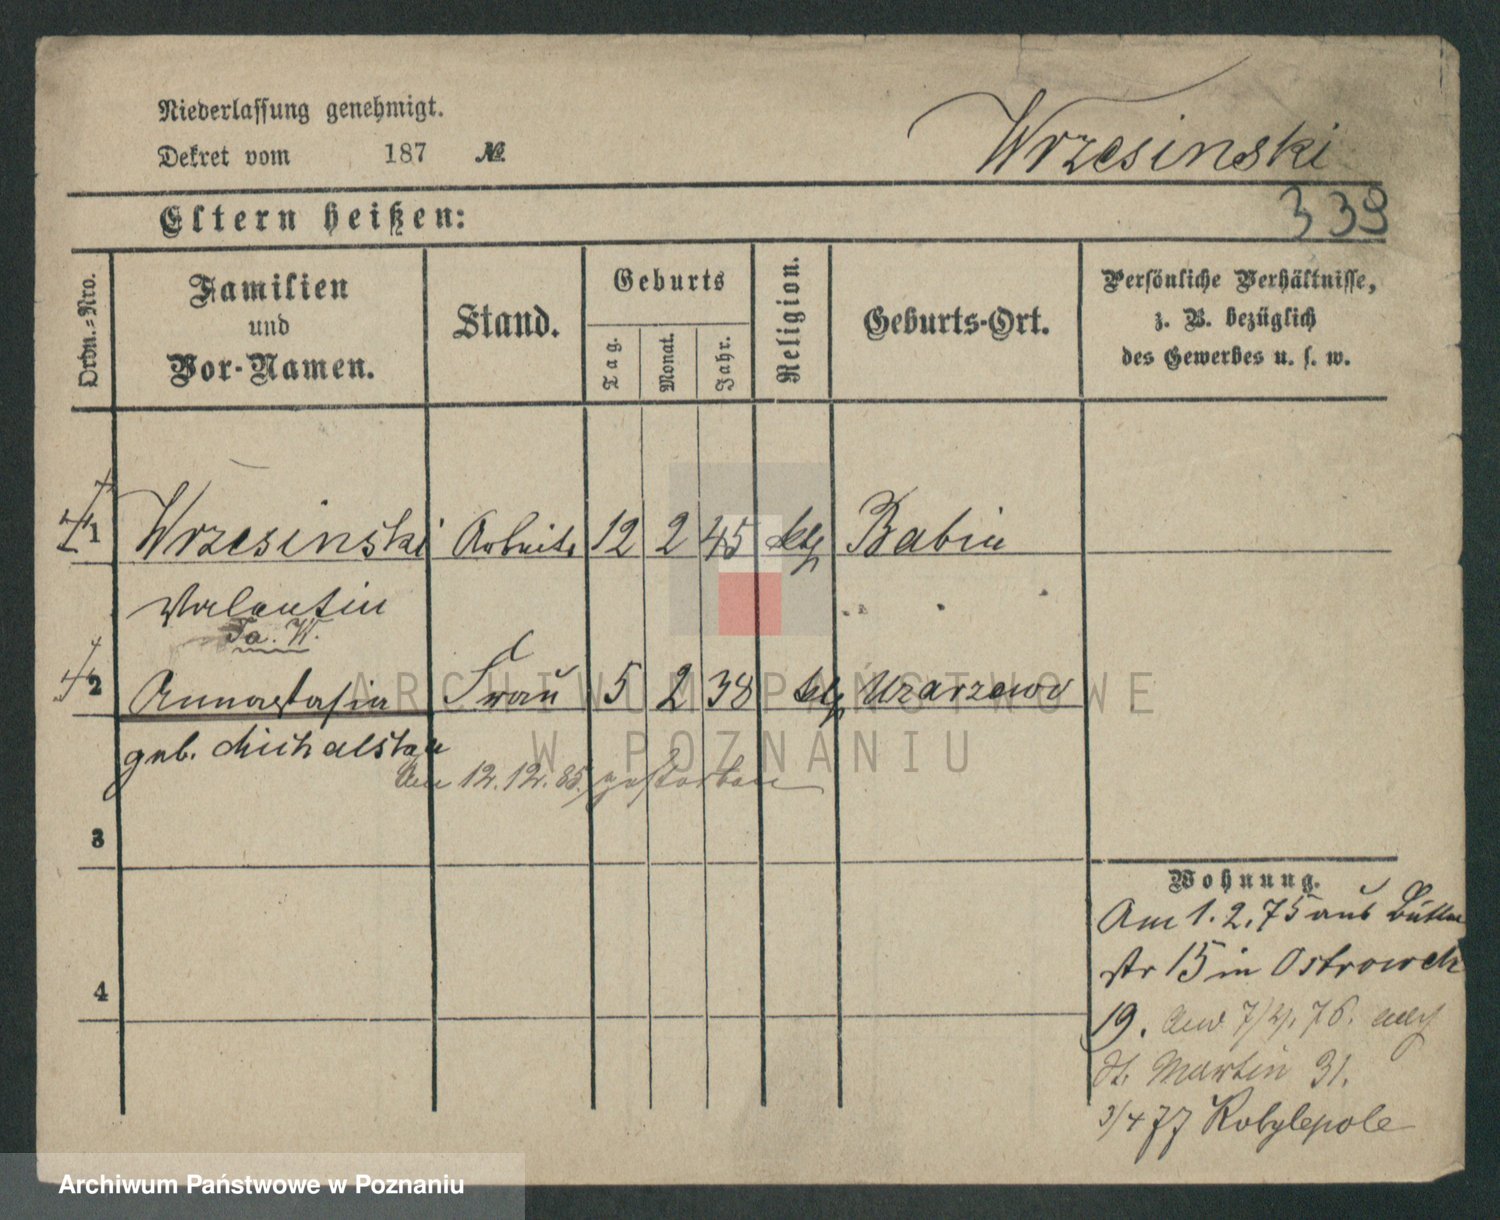 Niederlassung genehmigt.
Dekret vom 187 №
Wrzesinski
339
Eltern heißen:
Ordn.=Nro.
Familien
und
Vor-Namen.
Stand.
Geburts
Tag.
Monat.
Jahr.
Religion.
Geburts-Ort.
Persönliche Verhältnisse,
z. B. bezüglich
des Gewerbes u. s. w.
1 Wrzesinski 12 2 45 ktl Babin
Valentin
Ta. W.
2 Annastasia Frau 5 2 38 ktl
geb.
Am 12.12.85. gestorben
3
4
Wohnung.
Am 1.2.75 aus
str 15 in Ostrowek
19. 7/4. 76. auch
St. Martin 31.
3/4 77 Kobylepole
ARCHIWUM PAŃSTWOWE
W POZNANIU
Archiwum Państwowe w Poznaniu